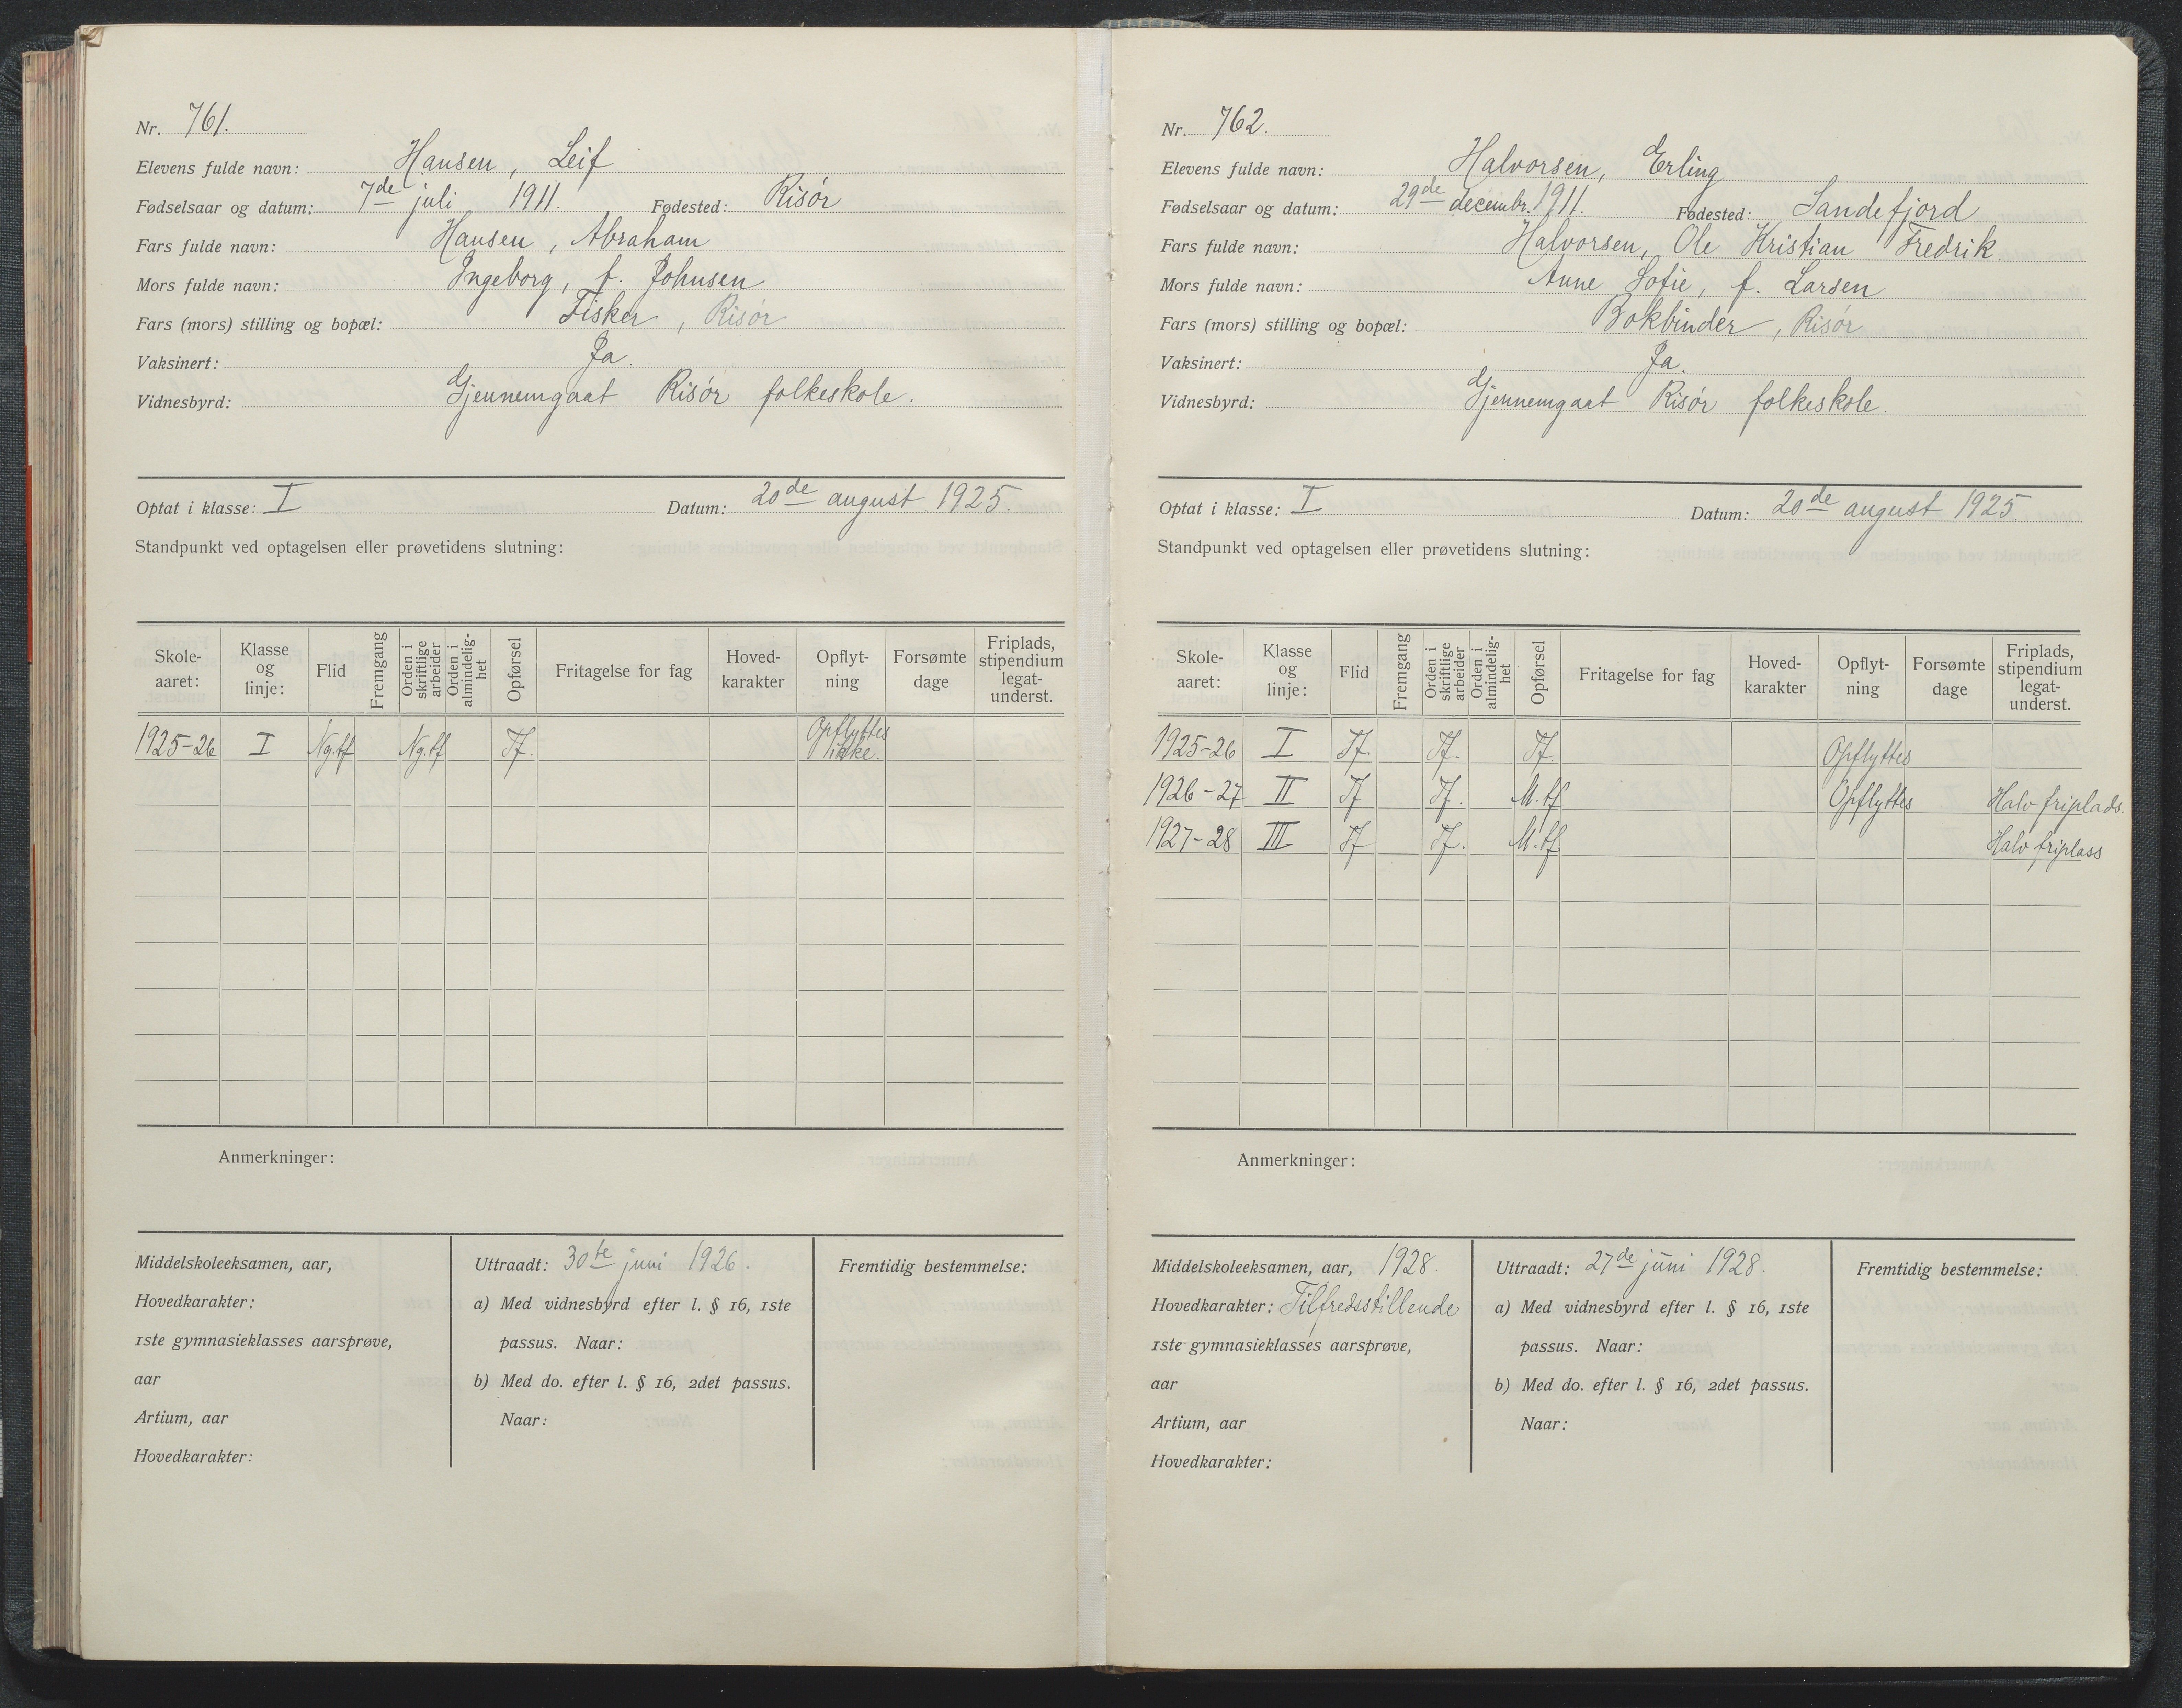 Nr. 761.
Elevens fulde navn: Hansen, Leif
Fødselsaar og datum: 7de juli 1911. Fødested: Risör
Fars fulde navn: Hansen, Abraham
Mors fulde navn: Ingeborg, f. Johnsen
Fars (mors) stilling og bopæl: Fisker, Risör
Vaksinert: Ja.
Vidnesbyrd: Gjennemgaat Risör folkeskole.
Optat i klasse: I Datum: 20de august 1925.
Standpunkt ved optagelsen eller prøvetidens slutning:
Skole-aaret: Klasse og linje: Flid Fremgang Orden i skriftlige arbeider Orden i almindelig-het Opførsel Fritagelse for fag Hoved-karakter Opflyt-ning Forsømte dage Friplads, stipendium legat-underst.
1925-26 I Ng.tf Ng.tf Tf. Opflyttes ikke.
Anmerkninger:
Middelskoleeksamen, aar,
Hovedkarakter:
1ste gymnasieklasses aarsprøve,
aar
Artium, aar
Hovedkarakter:
Uttraadt: 30te juni 1926.
a) Med vidnesbyrd efter l. § 16, 1ste
passus. Naar:
b) Med do. efter l. § 16, 2det passus.
Naar:
Fremtidig bestemmelse:
Nr. 762.
Elevens fulde navn: Halvorsen, Erling
Fødselsaar og datum: 29de decembr. 1911. Fødested: Sandefjord
Fars fulde navn: Halvorsen, Ole Kristian Fredrik
Mors fulde navn: Anne Sofie, f. Larsen
Fars (mors) stilling og bopæl: Bokbinder, Risör
Vaksinert: Ja.
Vidnesbyrd: Gjennemgaat Risör folkeskole.
Optat i klasse: I Datum: 20de august 1925.
Standpunkt ved optagelsen eller prøvetidens slutning:
Skole-aaret: Klasse og linje: Flid Fremgang Orden i skriftlige arbeider Orden i almindelig-het Opførsel Fritagelse for fag Hoved-karakter Opflyt-ning Forsømte dage Friplads, stipendium legat-underst.
1925-26 I Tf. Tf. Tf. Opflyttes
1926-27 II Tf Tf. M.tf Opflyttes Halv friplads.
1927-28 III Tf Tf. M.tf Halv friplass
Anmerkninger:
Middelskoleeksamen, aar, 1928.
Hovedkarakter: Tilfredsstillende
1ste gymnasieklasses aarsprøve,
aar
Artium, aar
Hovedkarakter:
Uttraadt: 27de juni 1928.
a) Med vidnesbyrd efter l. § 16, 1ste
passus. Naar:
b) Med do. efter l. § 16, 2det passus.
Naar:
Fremtidig bestemmelse: